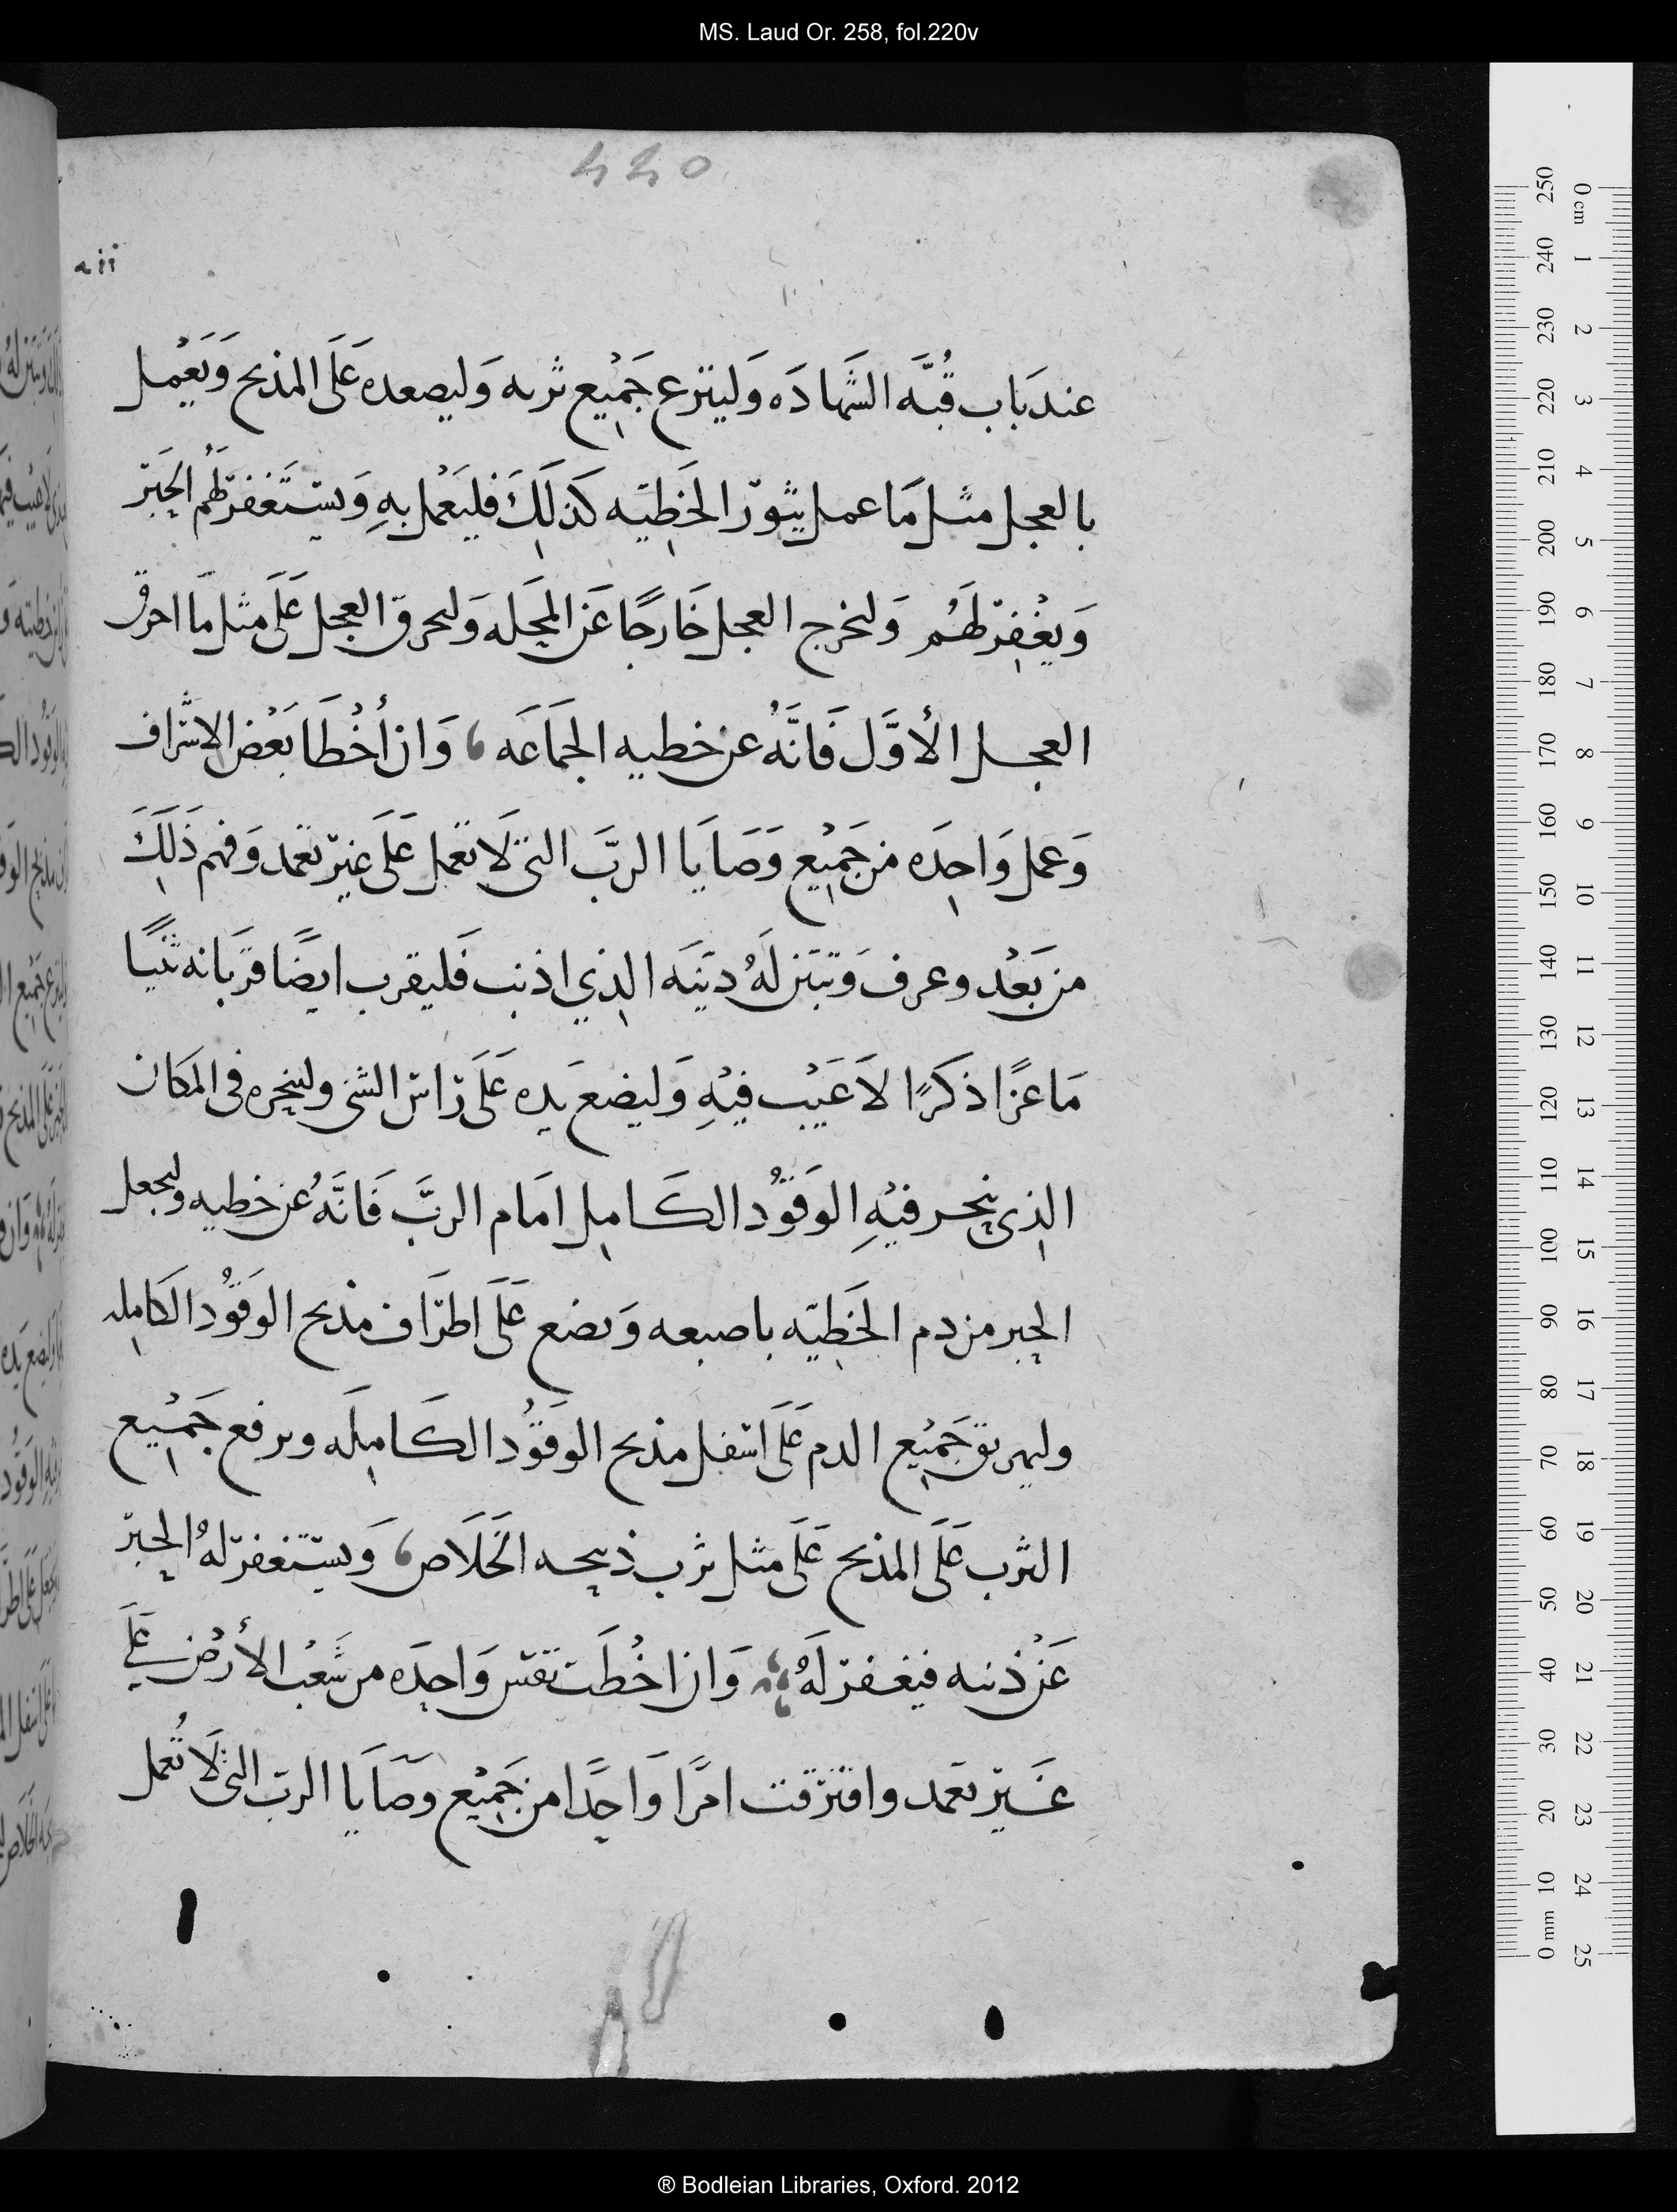 MS. Laud Or. 258, fol.220v
عند باب قُبَّه الشَهادَه وَلينزع جَميْع ثربه وَليصعده عَلَى المذبح وَيَعْمل
بالعجل مثل مَا عمل بثور الخَطِيَه كذلِكَ فليَعْمل بهِ وَيستَغفر لَهُم الحَبر
وَيغْفِر لهُم وَلىخرج العجل خَارجًا عَن المحَله وَلىحرق العجل عَلَى مثل ما احرق
العجل الأوَّل فَانَّهُ عن خطيه الجَمَاعَه وَان أخْطَا بَعْض الاشراف
وَعمل وَاحِدَه من جَميْع وَصَايَا الربَّ التى لَا تعمل عَلَى غير تعمد وَفهم ذَلِكَ
من بَعْد وعرف وَتبَين لَهُ دَينَه الذِي اذنب فَليقرب ايضًا قربَانه ثنيًا
مَا عزًا ذكَرًا لاَ عَيْب فيْهِ وَليضع يَده عَلَى رَاس الثنى ولينحره فى المكَان
الذِى ينحر فيْهِ الوَقوُد الكَامِل امَام الربَّ فَانَّهُ عن خطيه وليجعل
الحبر من دم الخَطِيَه باصبعه وَيضع عَلَى اطرَاف مذبح الوَقوُد الكَامِله
وليهريق جَميْع الدم عَلَى اسفل مذبح الوَقوُد الكَامِلَه ويرفع جَميْع
الثرب عَلَى المذبح عَلَى مثل ثرب ذبيحه الخَلَاص وَيستغفر لهُ الحبر
عَنْ ذنبه فيغفر لَهُ وَان اخْطَت نفس وَاحِدَه من شَعْب الأرْض عَلَى
غَير تعمد واقترفت امرًا وَاحِدًا من جَميْع وصَايَا الرب التى لَا تُعمل
® Bodleian Libraries, Oxford. 2012